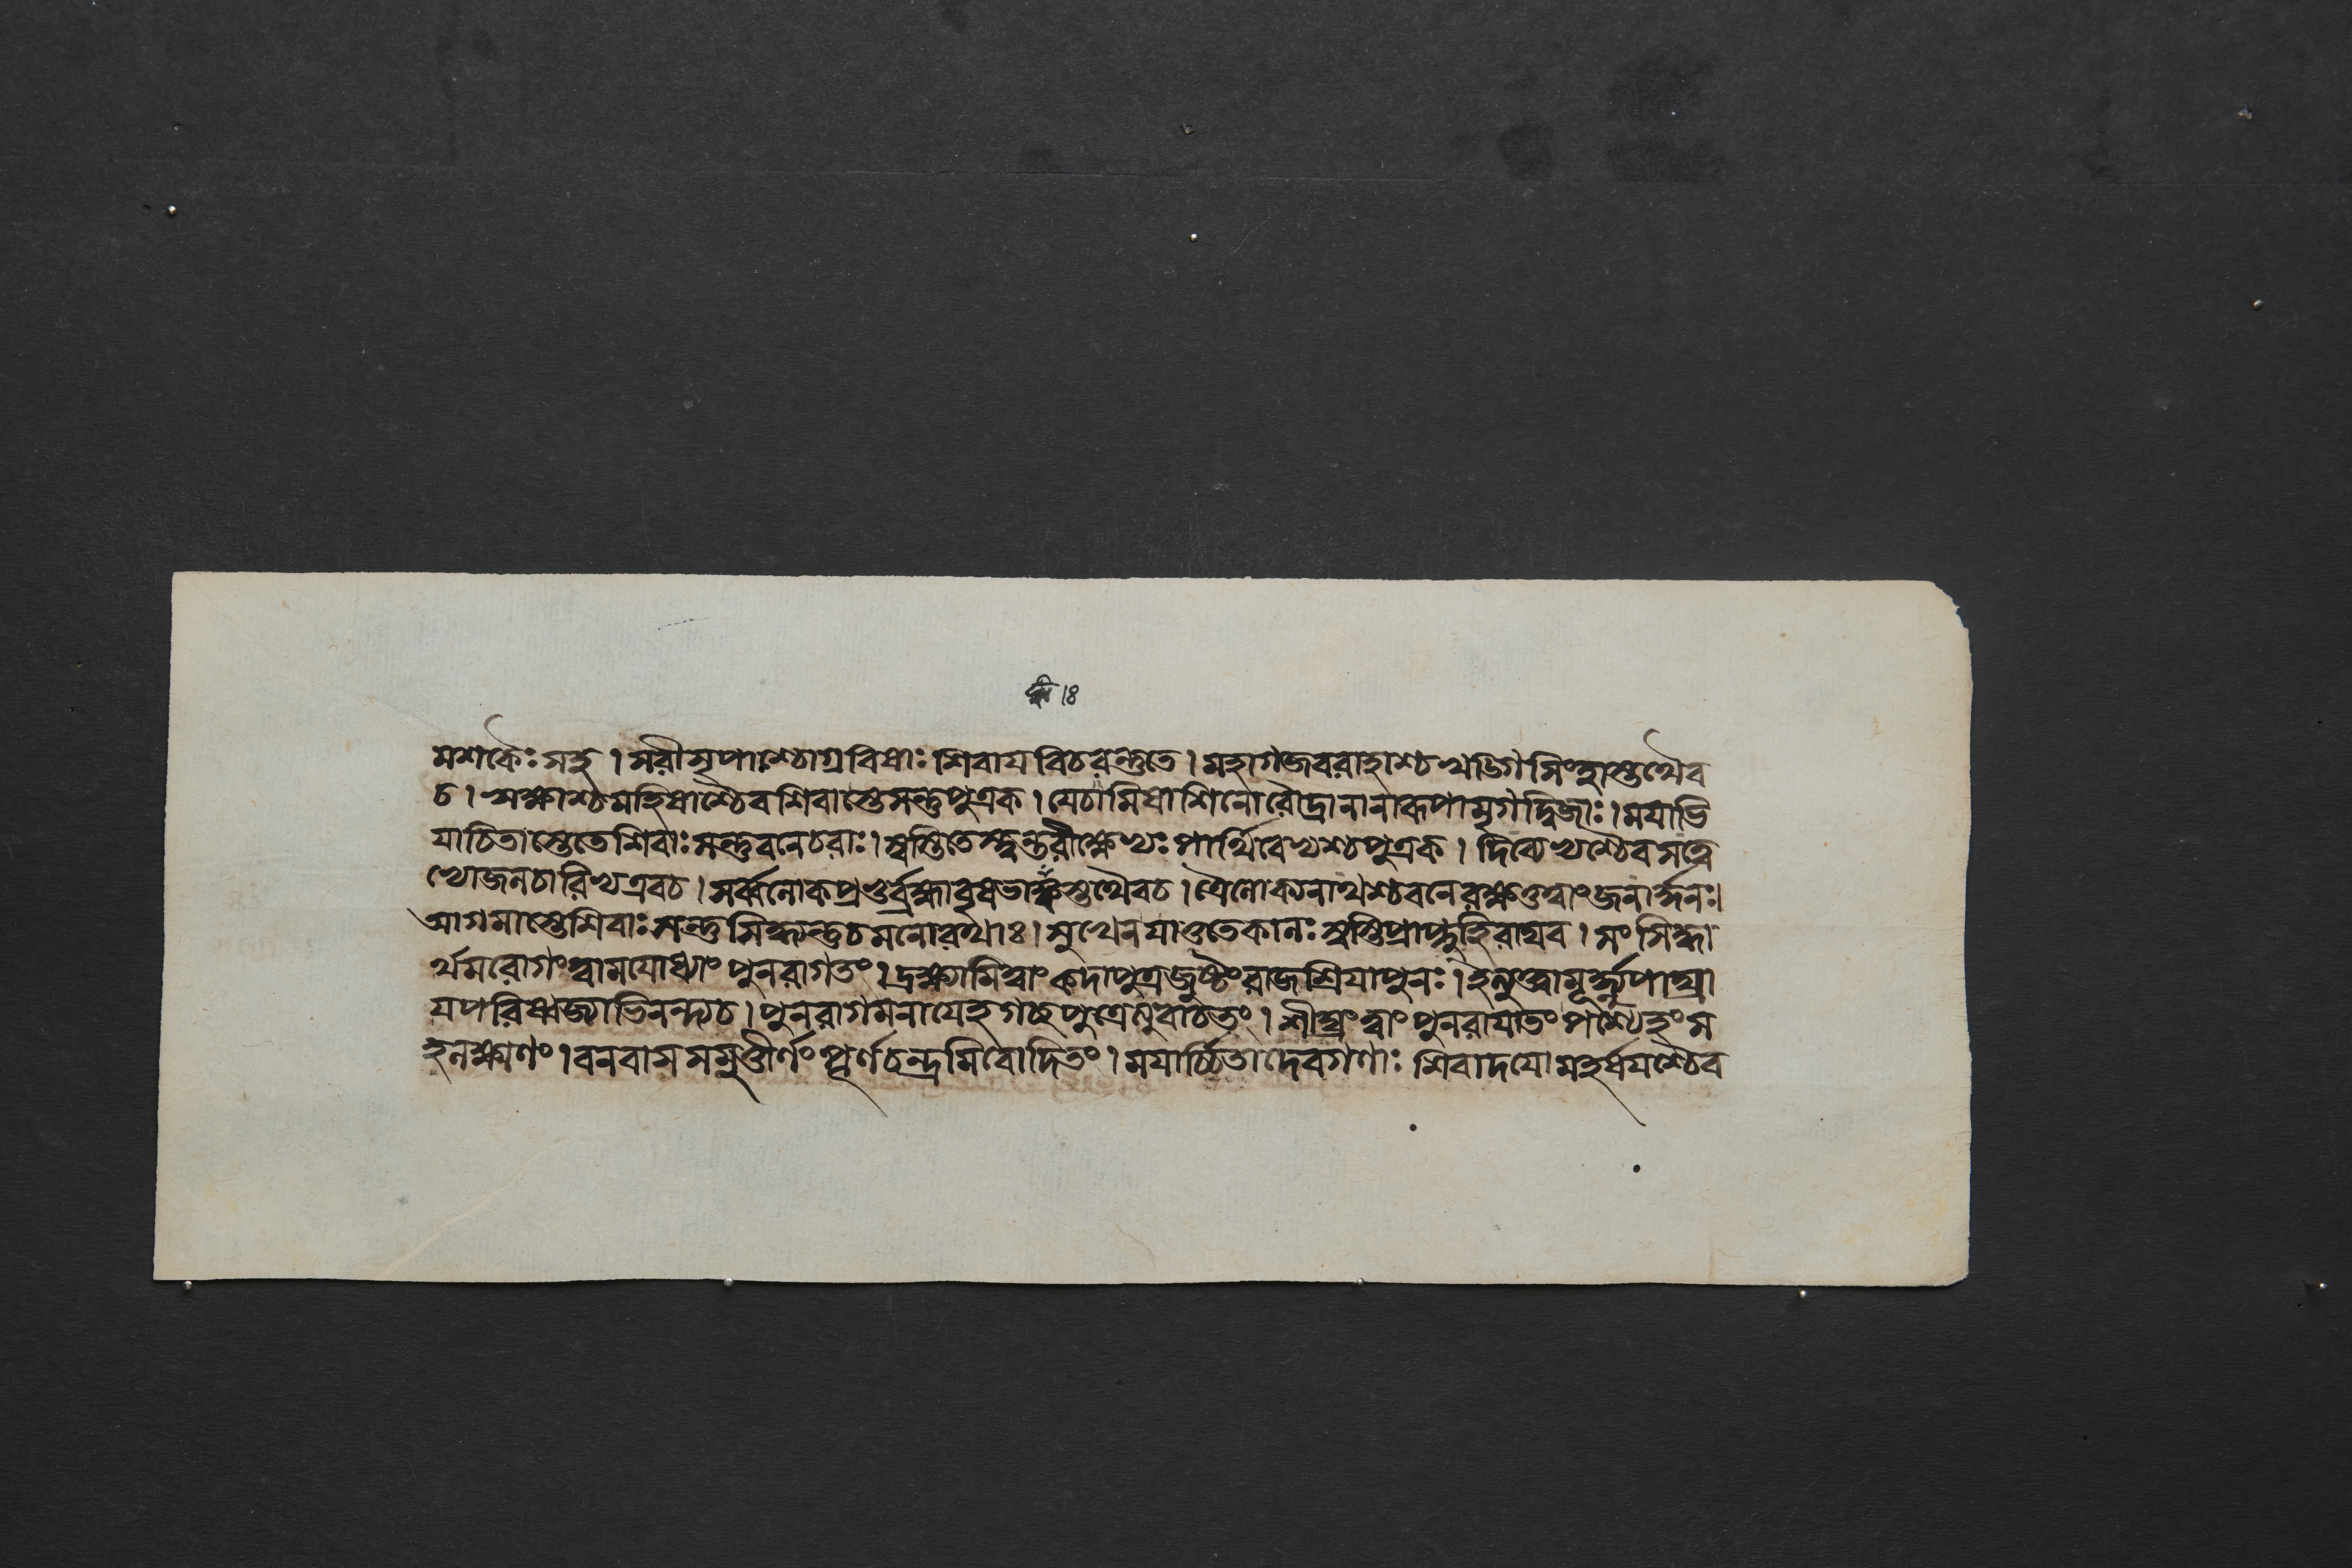 মশকৈঃ সহ । সরীসৃপাশ্চোগ্রবিষাঃ শিবায বিচরন্তুতে । মহাগজবরাহাশ্চ খড্গিসিংহাস্তথৈব
চ । ঋক্ষাশ্চমহিষাশ্চৈবশিবাস্তেসন্তুপুত্রক । যেচামিষাশিনোরৌদ্রানানারূপামৃগদ্বিজাঃ । মযাভি
যাচিতাস্তেতেশিবাঃ সন্তুবনেচরাঃ । স্বস্তিতেস্ত্বন্তরীক্ষেভ্যঃ পার্থিবেভ্যশ্চপুত্রক । দিব্যেভ্যশ্চৈবসত্ত্বে
ভ্যোজলচারিভ্যএবচ । সর্ব্বলোকপ্রভুর্ব্রহ্মাবৃষভাঙ্কস্তথৈবচ । ত্রৈলোক্যনাথশ্চবনেরক্ষতুত্বাংজনার্দ্দনঃ।
আগমাস্তেশিবাঃ সন্তু সিদ্ধ্যন্তুচমনোরথাঃ । সুখেনযাতুতেকালঃ স্বস্তিপ্রাপ্নুহিরাঘব । সংসিদ্ধা
র্থমরোগংত্বামযোধ্যাং পুনরাগতং । দ্রক্ষ্যামিত্বাং কদাপুত্রজুষ্টংরাজশ্রিযাপুনঃ । ইত্যুক্ত্বামূর্দ্ধ্ন্যুপাঘ্রা
যপরিষ্বজ্যাভিনন্দ্যচ । পুনরাগমনাযেহগচ্ছপুত্রেত্যুবাচতং । শীঘ্রংত্বাং পুনরাযাতং পশ্যেহংস
হলক্ষ্মণং । বনবাসসমুত্তীর্ণং পূর্ণচন্দ্রমিবোদিতং । মযার্চ্চিতাদেবগণাঃ শিবাদযোমহর্ষযশ্চৈব